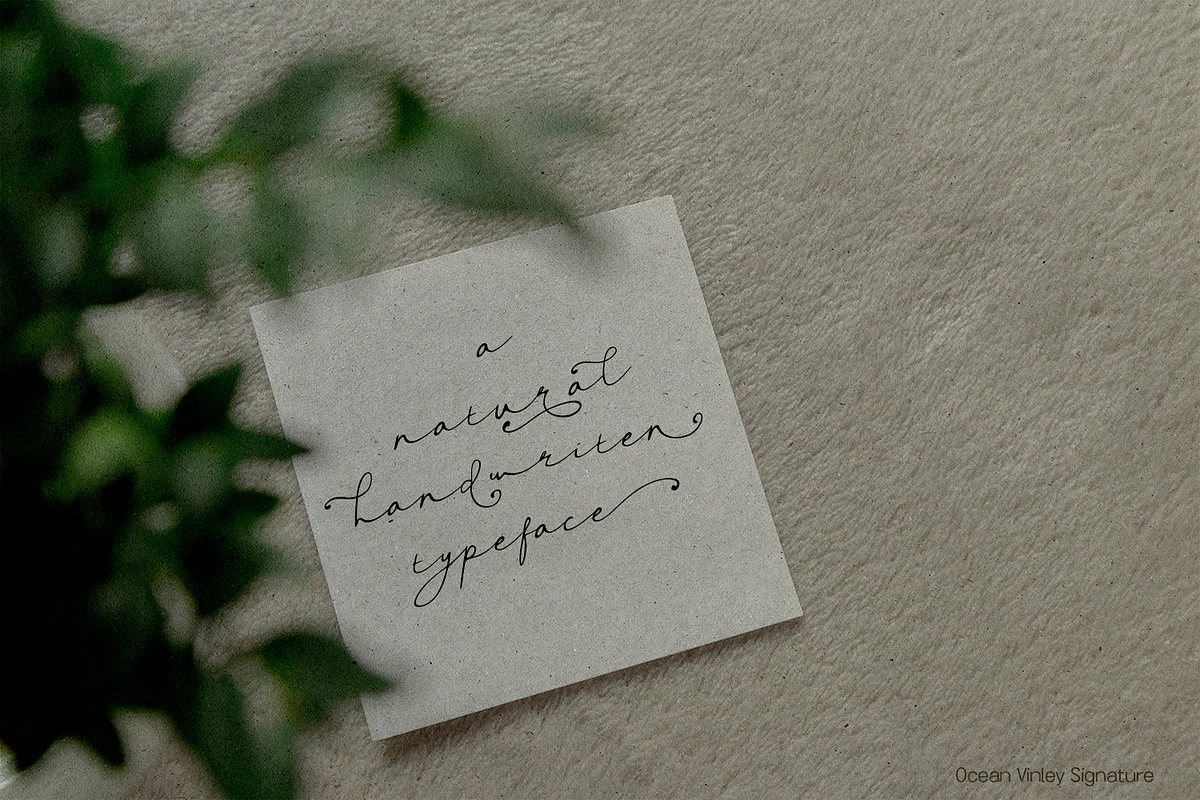 a
natural
handwriten
typeface
Ocean Vinley Signature